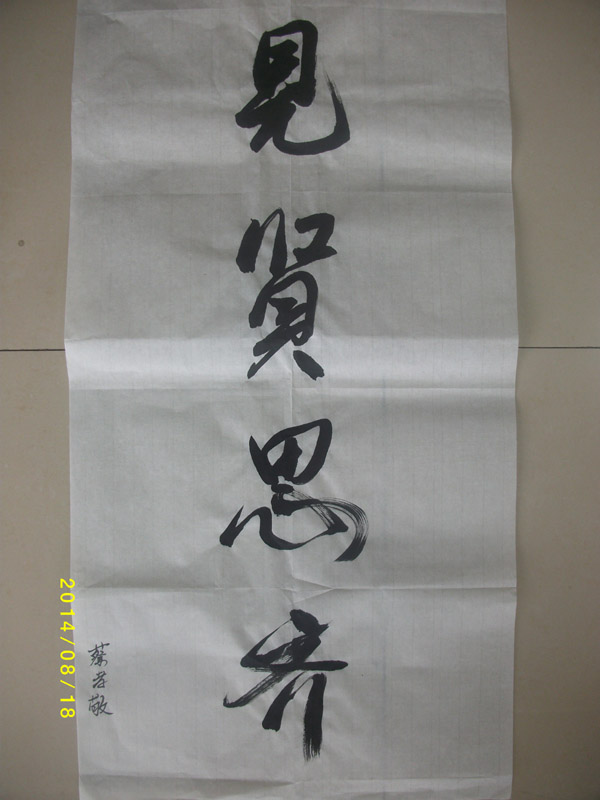 見賢思齐
蔡孝敬
2014/08/18